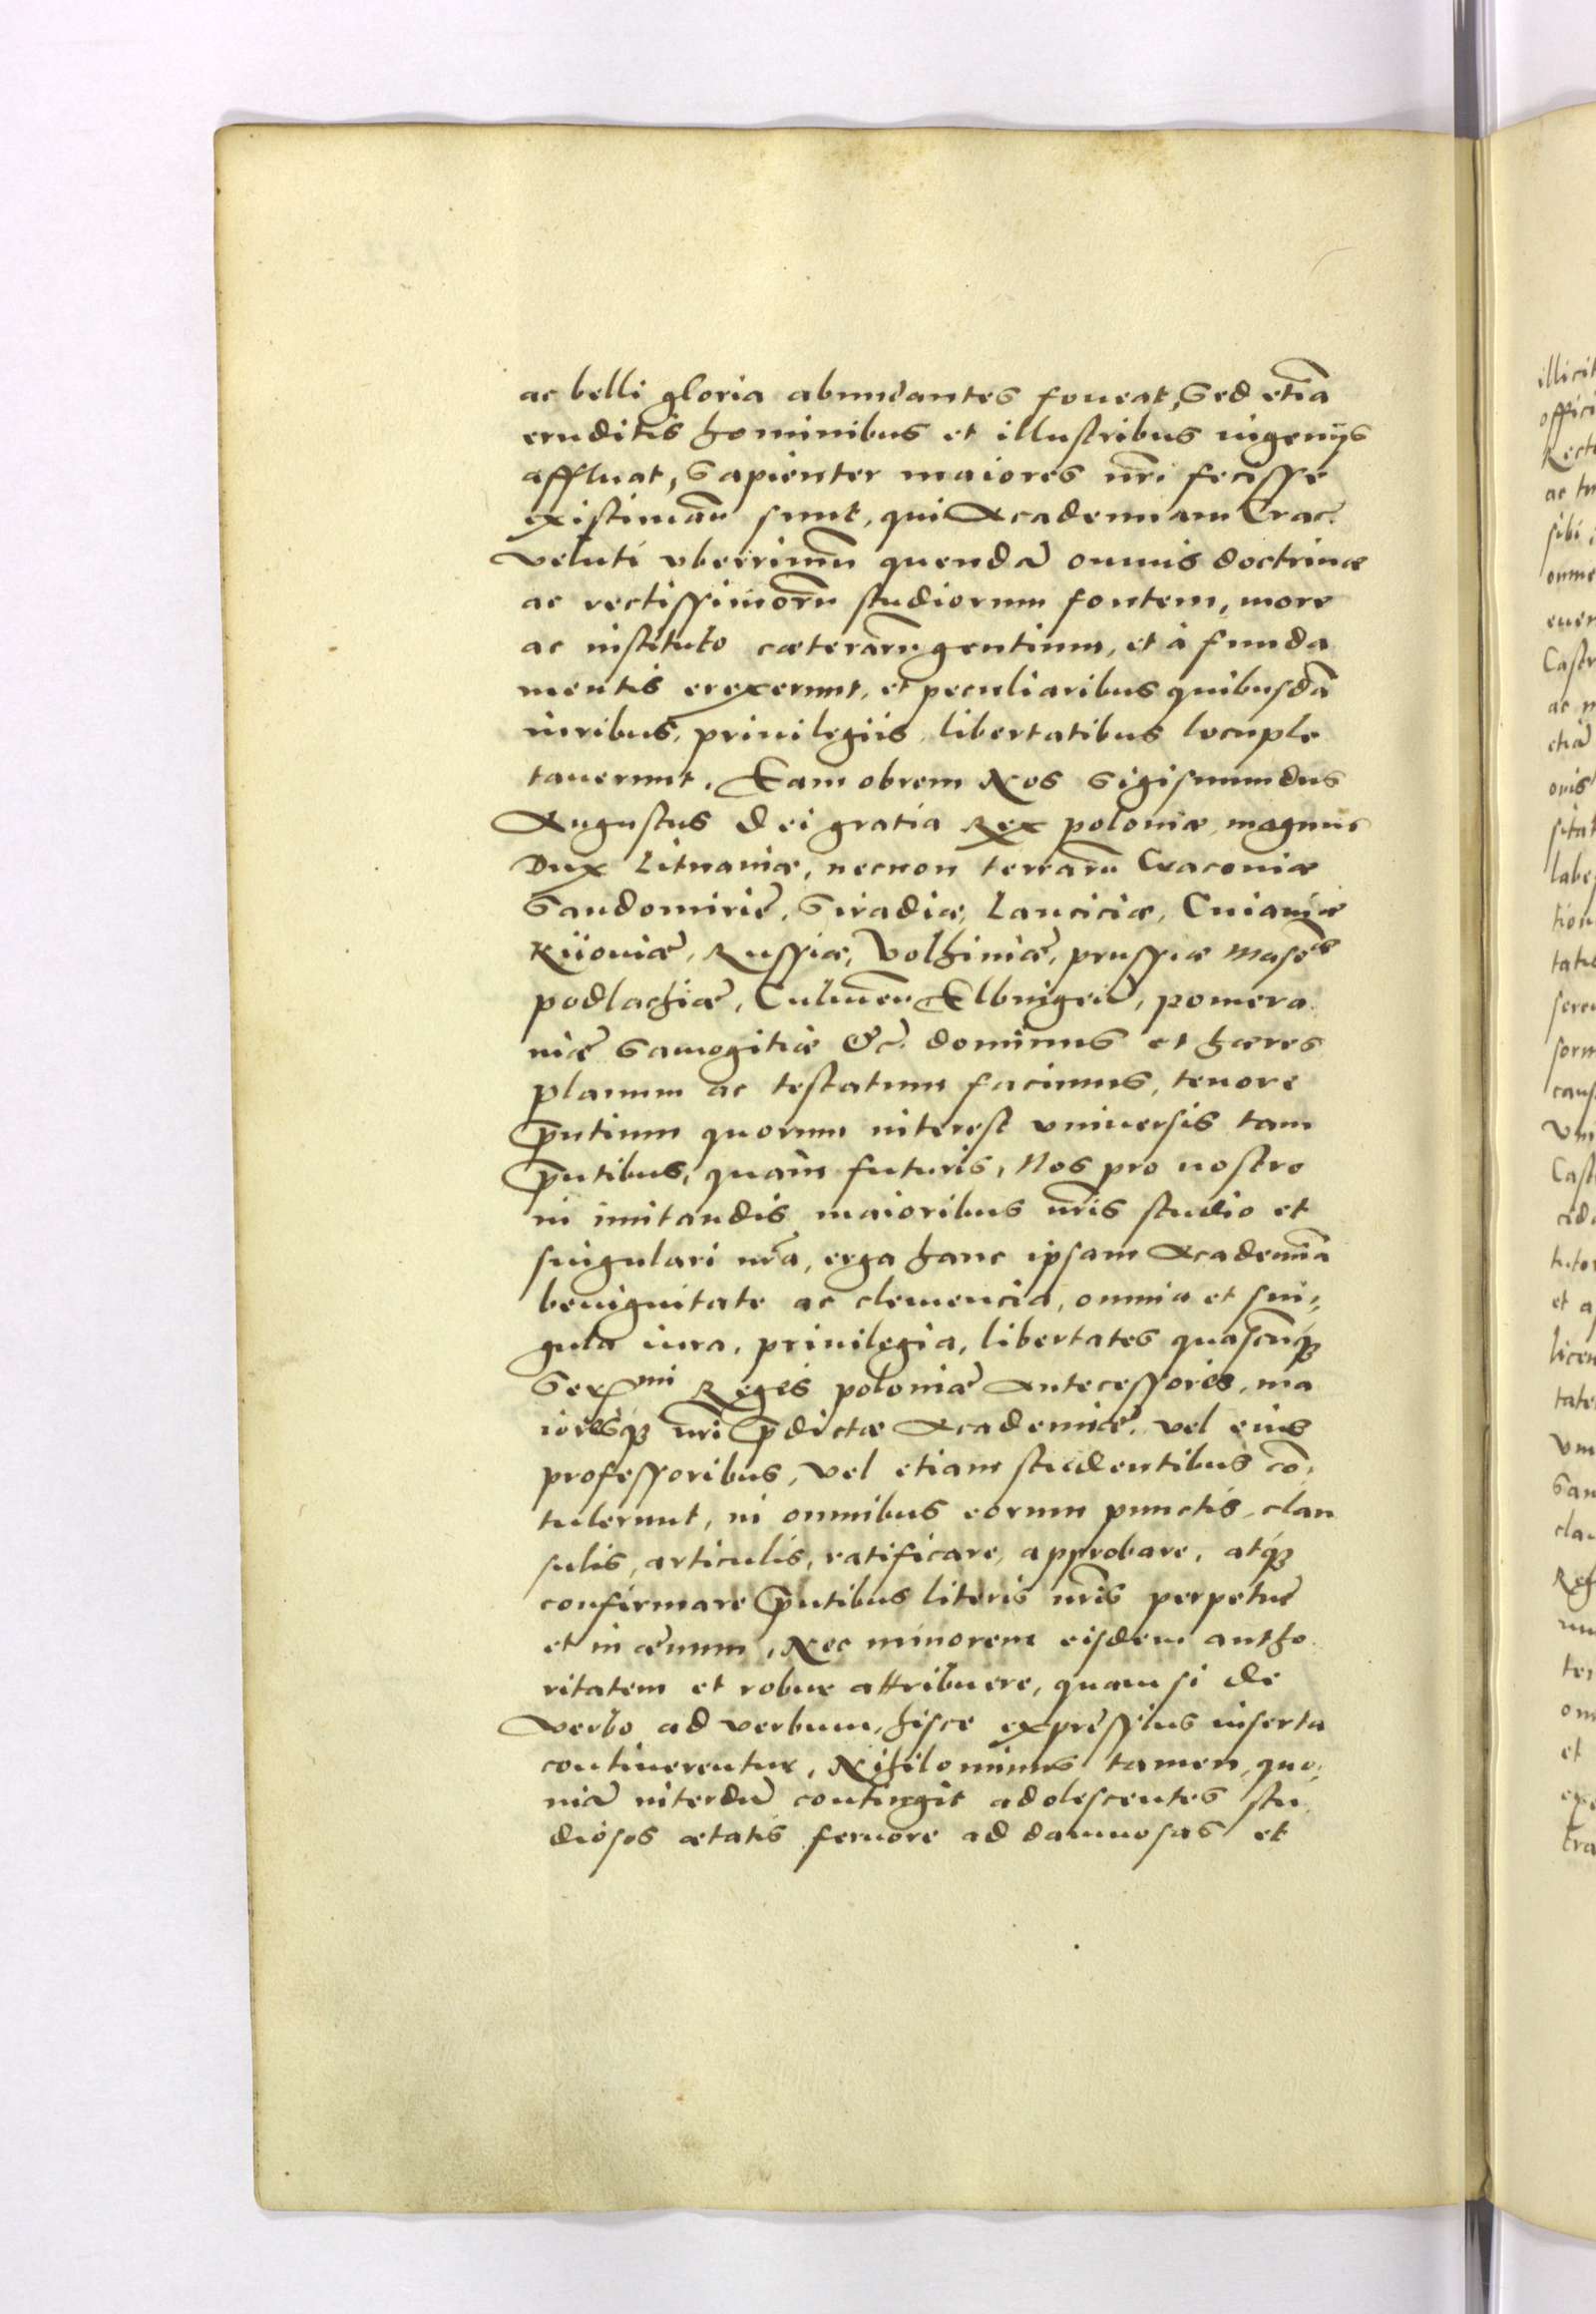 ac belli gloria abundantes foueat, Sed etiã
eruditis hominibus et illustribus ingenijs
affluat, Sapienter maiores nr̃i fecisse
existimãn sunt, qui Academiam Crac.
veluti vberrimũ quendã omnis doctrinæ
ac rectissimorũ studiorum fontem, more
ac instituto cæterarũ gentium, et à funda
mentis erexerunt, et peculiaribus quibusdã
iuribus, priuilegiis, libertatibus locuple
tauerunt, Eam obrem Nos Sigismundus
Augustus Dei gratia Rex poloniæ magnus
Dux Lituaniæ, necnon terrarũ Cracouiæ
Sandomiriæ, Siradiæ, Lanciciæ, Cuiauiæ
Kijouiæ, Russiæ, Volhiniæ, prussiæ Masõe
podlachiæ, Culmẽn Elbingeñ, pomera
niæ Samogitiæ &c̃. dominus et hæres
planum ac testatum facimus, tenore
p̃ntium quorum interest vniuersis tam
p̃ntibus, quam futuris, Nos pro nostro
in imitandis maioribus nr̃is studio et
singulari nr̃a, erga hanc ipsam Academiã
benignitate ac clemencia, omnia et sin,
gula iura, priuilegia, libertates quascũq3
Serᵐⁱ Reges poloniæ Antecessores, ma
ioresq3 nr̃i p̃dictæ Academiæ, vel eius
professoribus, vel etiam studentibus cõ,
tulerunt, in omnibus eorum punctis, clau
sulis, articulis, ratificare, approbare, atq3
confirmare p̃ntibus literis nr̃is perpetuè
et in æuum, Nec minorem eisdem autho
ritatem et robur attribuere, quam si de
verbo ad verbum, hisce expressius inserta
continerentur, Nihilominus tamen, quo,
niã interdũ contingit adolescentes stu
diosos ætatis feruore ad damnosas et
illicit
offici
Recto
sibi
omne
Castr
ac
etiã
labe
tion
tati
caus
Cast
et a
licen
tate
San
et